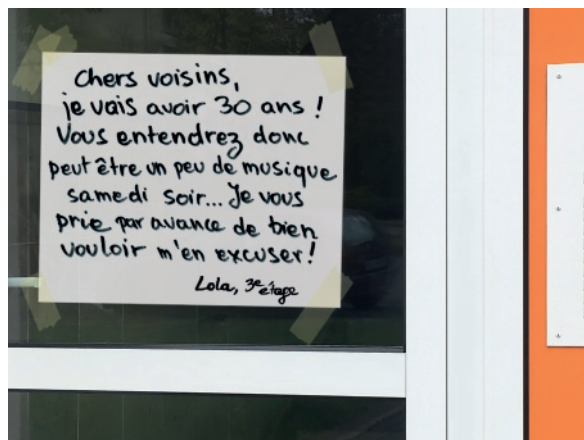 Chers voisins,
je vais avoir 30 ans !
Vous entendrez donc
peut être un peu de musique
samedi soir... Je vous
prie par avance de bien
vouloir m'en excuser !
Lola, 3e étage